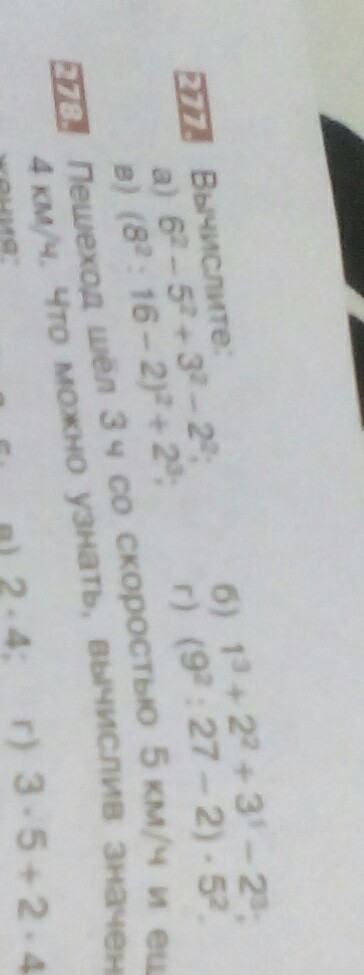 277. Вычислите:
а) 6² – 5² + 3² – 2²; б) 1³ + 2² + 3¹ – 2³;
в) (8² : 16 – 2)² + 2³; г) (9² : 27 – 2) · 5².
278. Пешеход шёл 3 ч со скоростью 5 км/ч и ещ
4 км/ч. Что можно узнать, вычислив значен
жения:
в) 2 · 4; г) 3 · 5 + 2 · 4